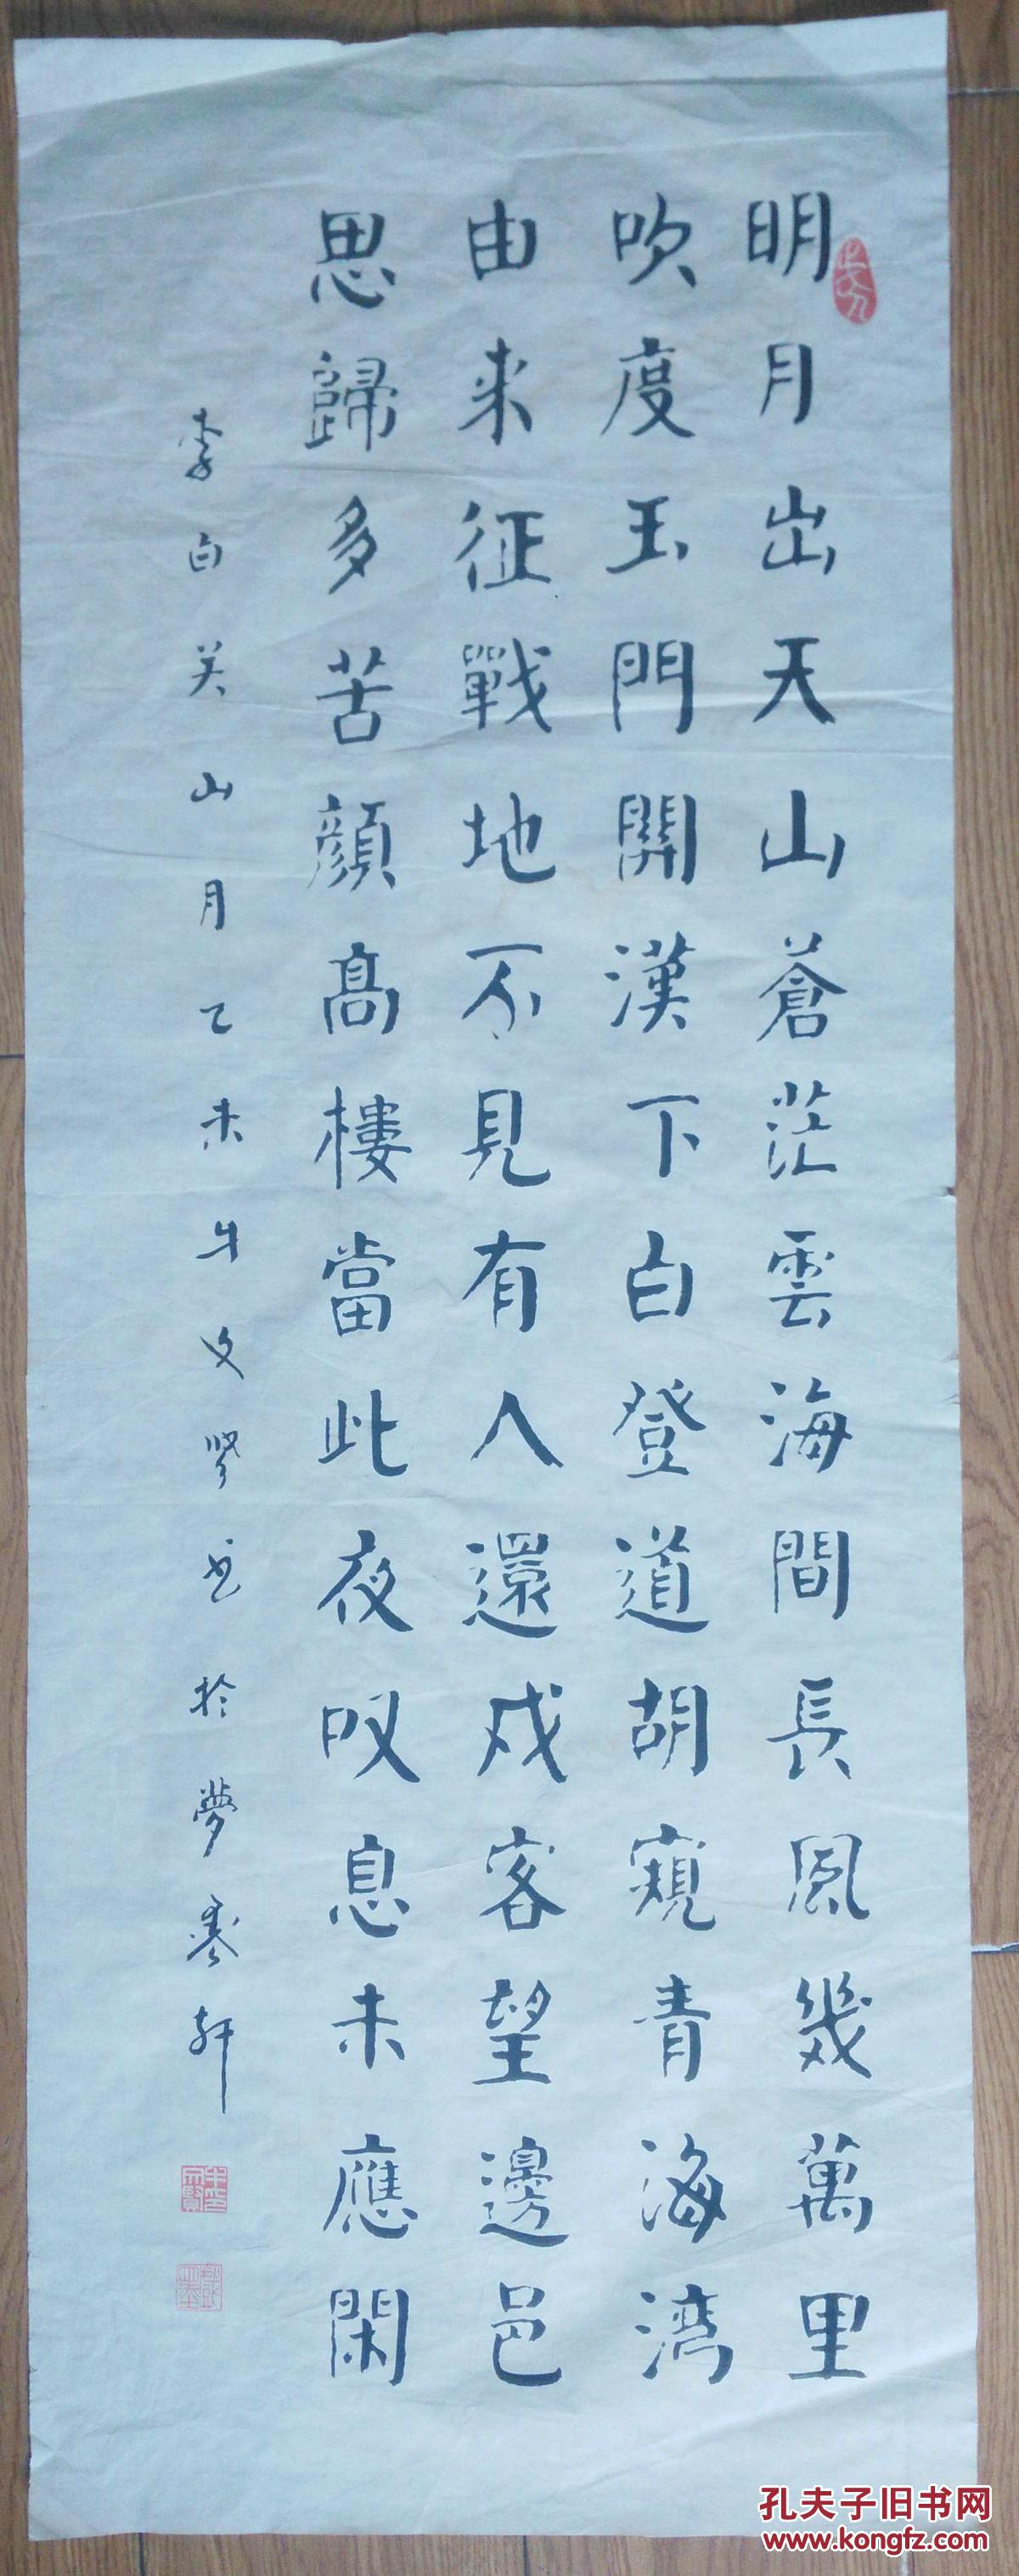 明月出天山蒼茫雲海間長風幾萬里
吹度玉門開漢下白登道胡窺青海湾
由来征戰地不見有人還戍客望邊邑
思歸多苦顔高樓當此夜叹息未應閑
李白关山月乙未牛文贤书於夢寒轩
孔夫子旧书网
www.kongfz.com